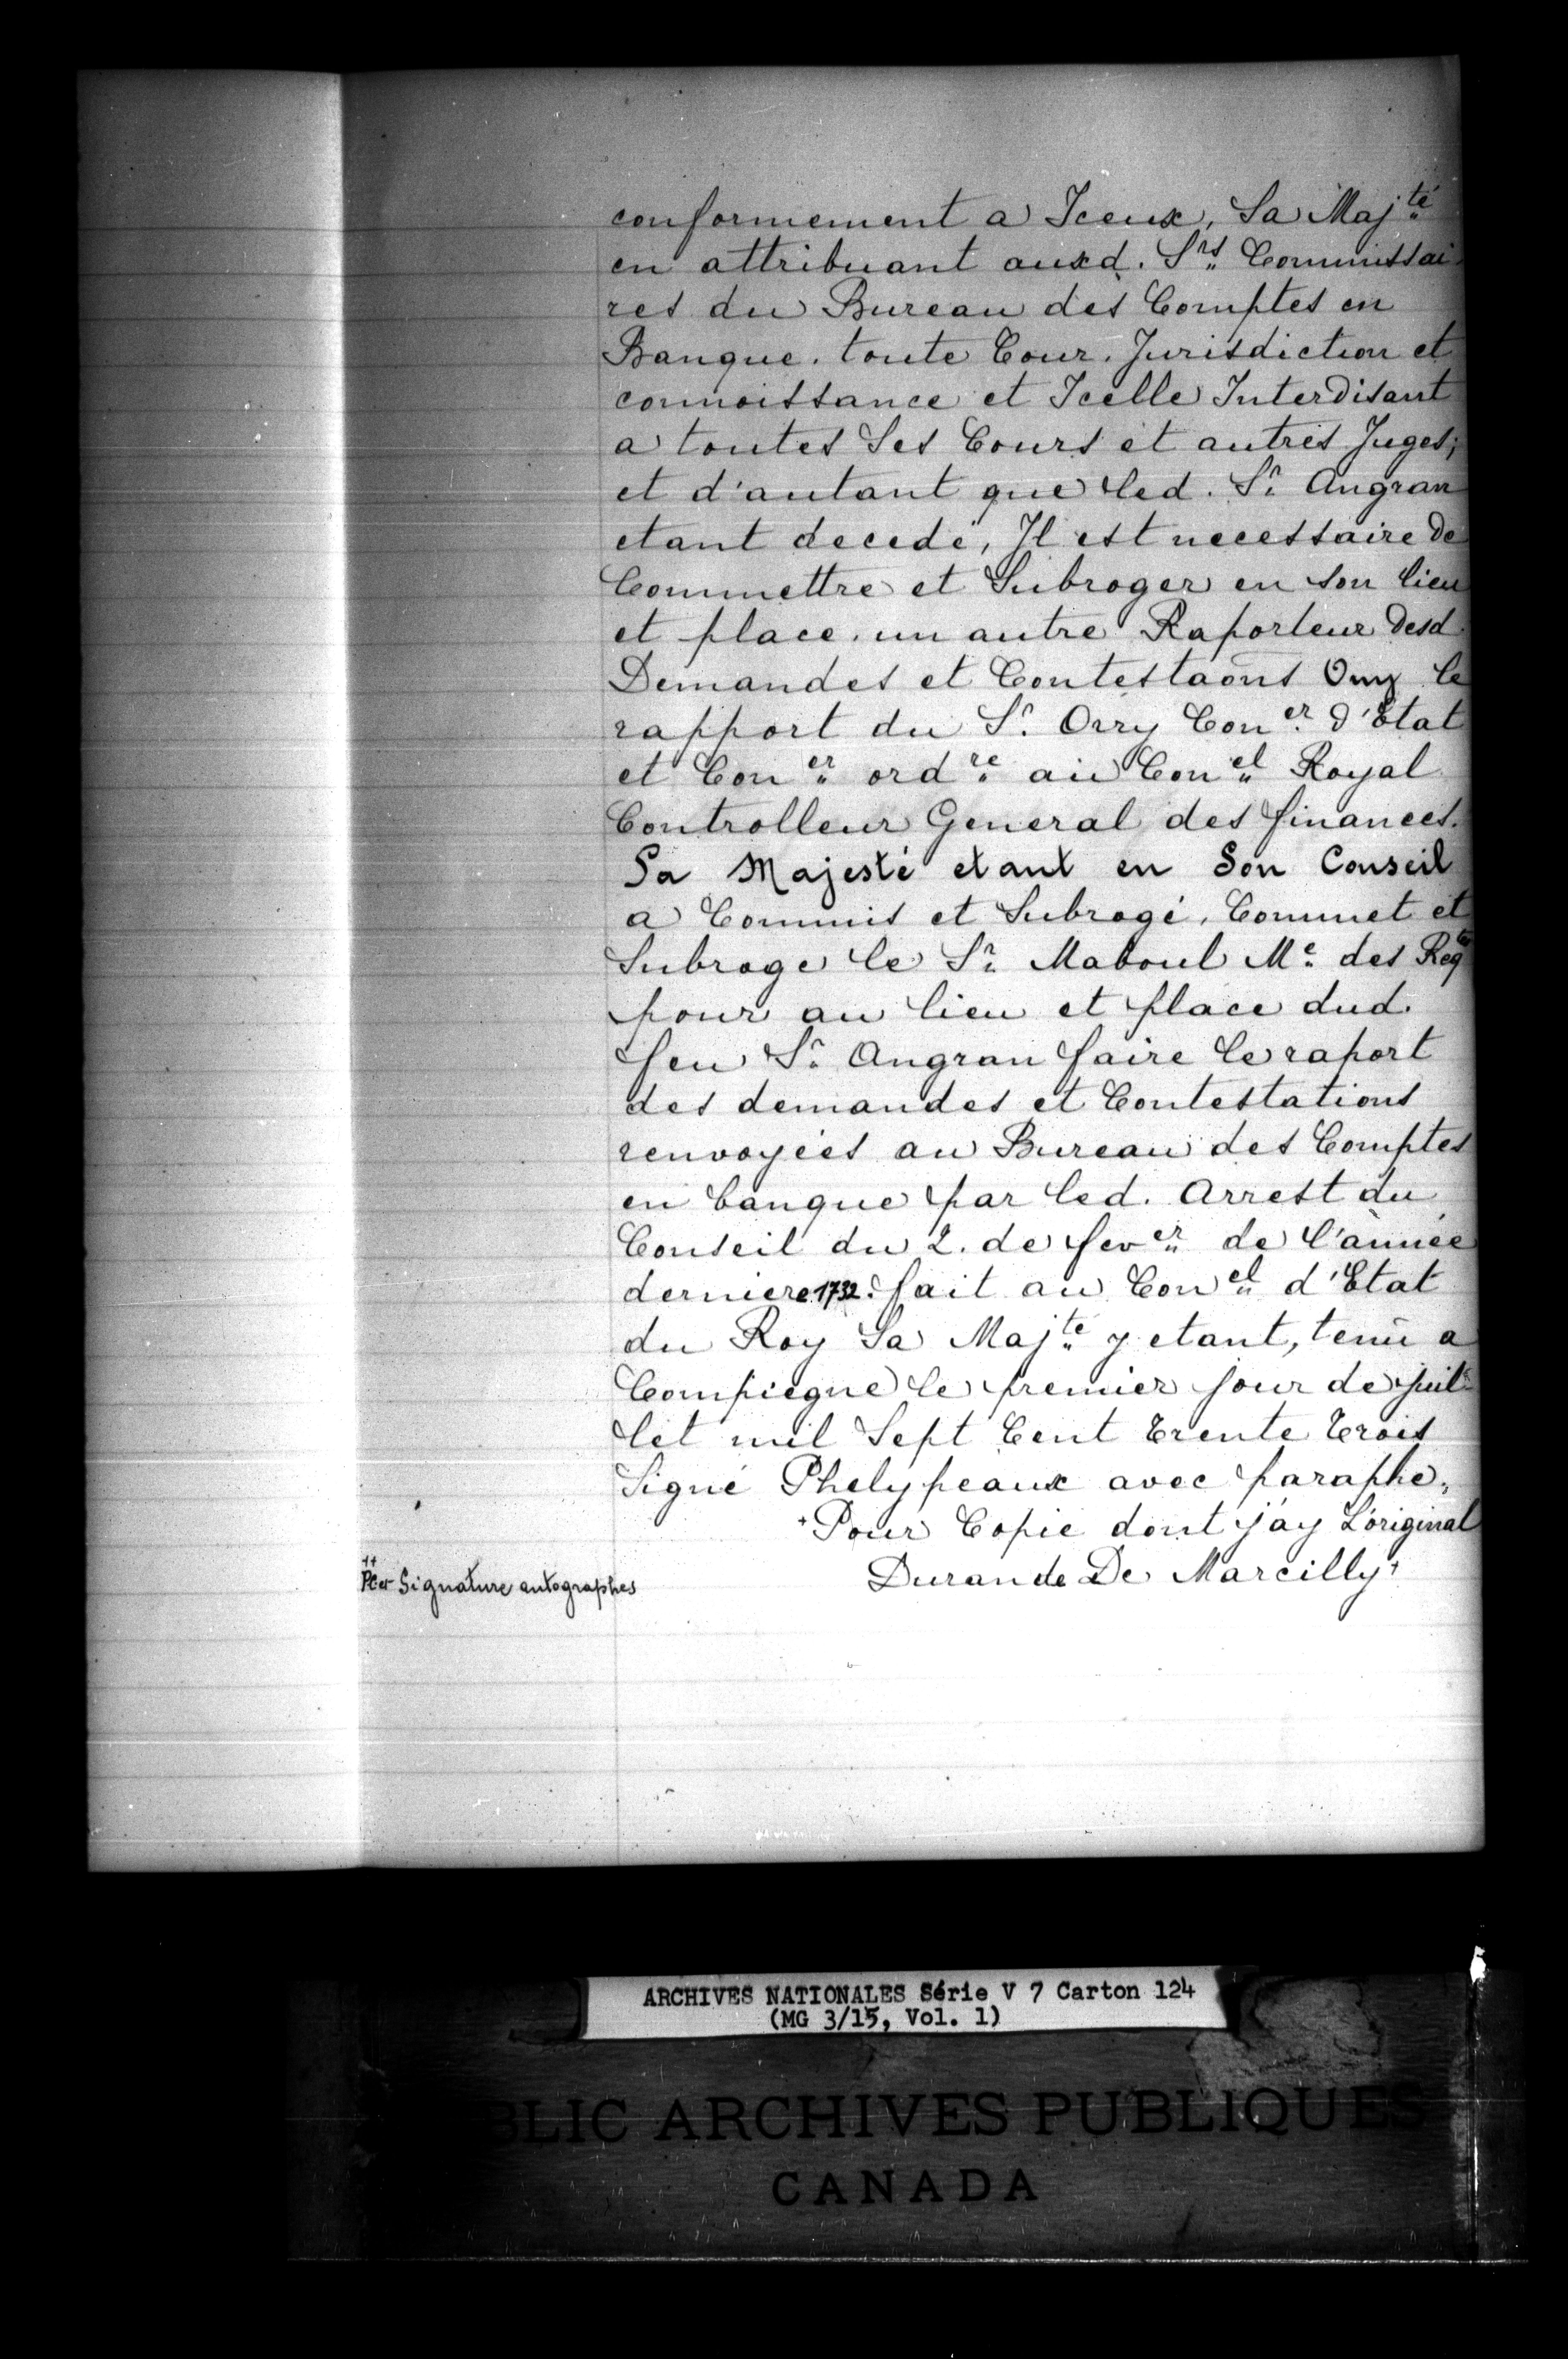 conformement a Iceux, Sa Maj.té
en attribuant auxd. S.rs Commissai
res du Bureau des Comptes en
Banque. toute Cour. Jurisdiction et
connoissance et Icelle Interdisant
a toutes Ses Cours et autres Juges;
et d'autant que led. S.r Angran
etant decedé, Il est necessaire de
Commettre et Subroger en son lieu
et place. un autre Raporteur desd.
Demandes et Contestaons Ouy le
rapport du S.r Orry Con.er d'Etat
et Con.er ord.re au Con.el Royal
Controlleur General des finances.
Sa Majesté etant en Son Conseil
a Commis et Subrogé, Commet et
Subroge le S.r Maboul M.e des Reqtes
pour au lieu et place dud.
feu S.r Angran faire le raport
des demandes et Contestations
renvoyées au Bureau des Comptes
en banque par led. Arrest du
Conseil du 2. de fev.er de l'année
derniere 1732. fait au Con.el d'Etat
du Roy Sa Maj.te y etant, tenu a
Compiegne le premier jour de juil-
let mil Sept Cent trente trois
Signé Phelypeaux avec paraphe.
+Pour Copie dont j'ay L'original
Durande De Marcilly+
++ Signature autographes
ARCHIVES NATIONALES Série V 7 Carton 124
(MG 3/15, Vol. 1)
BLIC ARCHIVES PUBLIQUES
CANADA